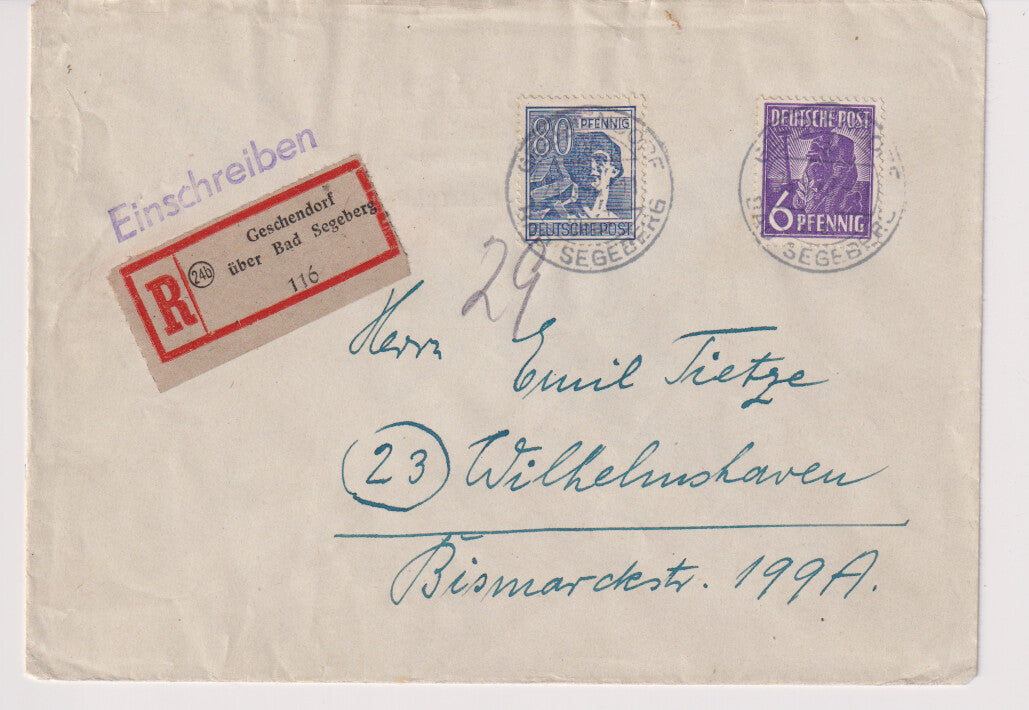 Einschreiben
R
24b
Geschendorf
über Bad Segeberg
116
80 PFENNIG
DEUTSCHE POST
SEGEBERG
DEUTSCHE POST
6 PFENNIG
SEGEBERG
29
Herrn
Emil Tietze
23 Wilhelmshaven
Bismarckstr. 199A.